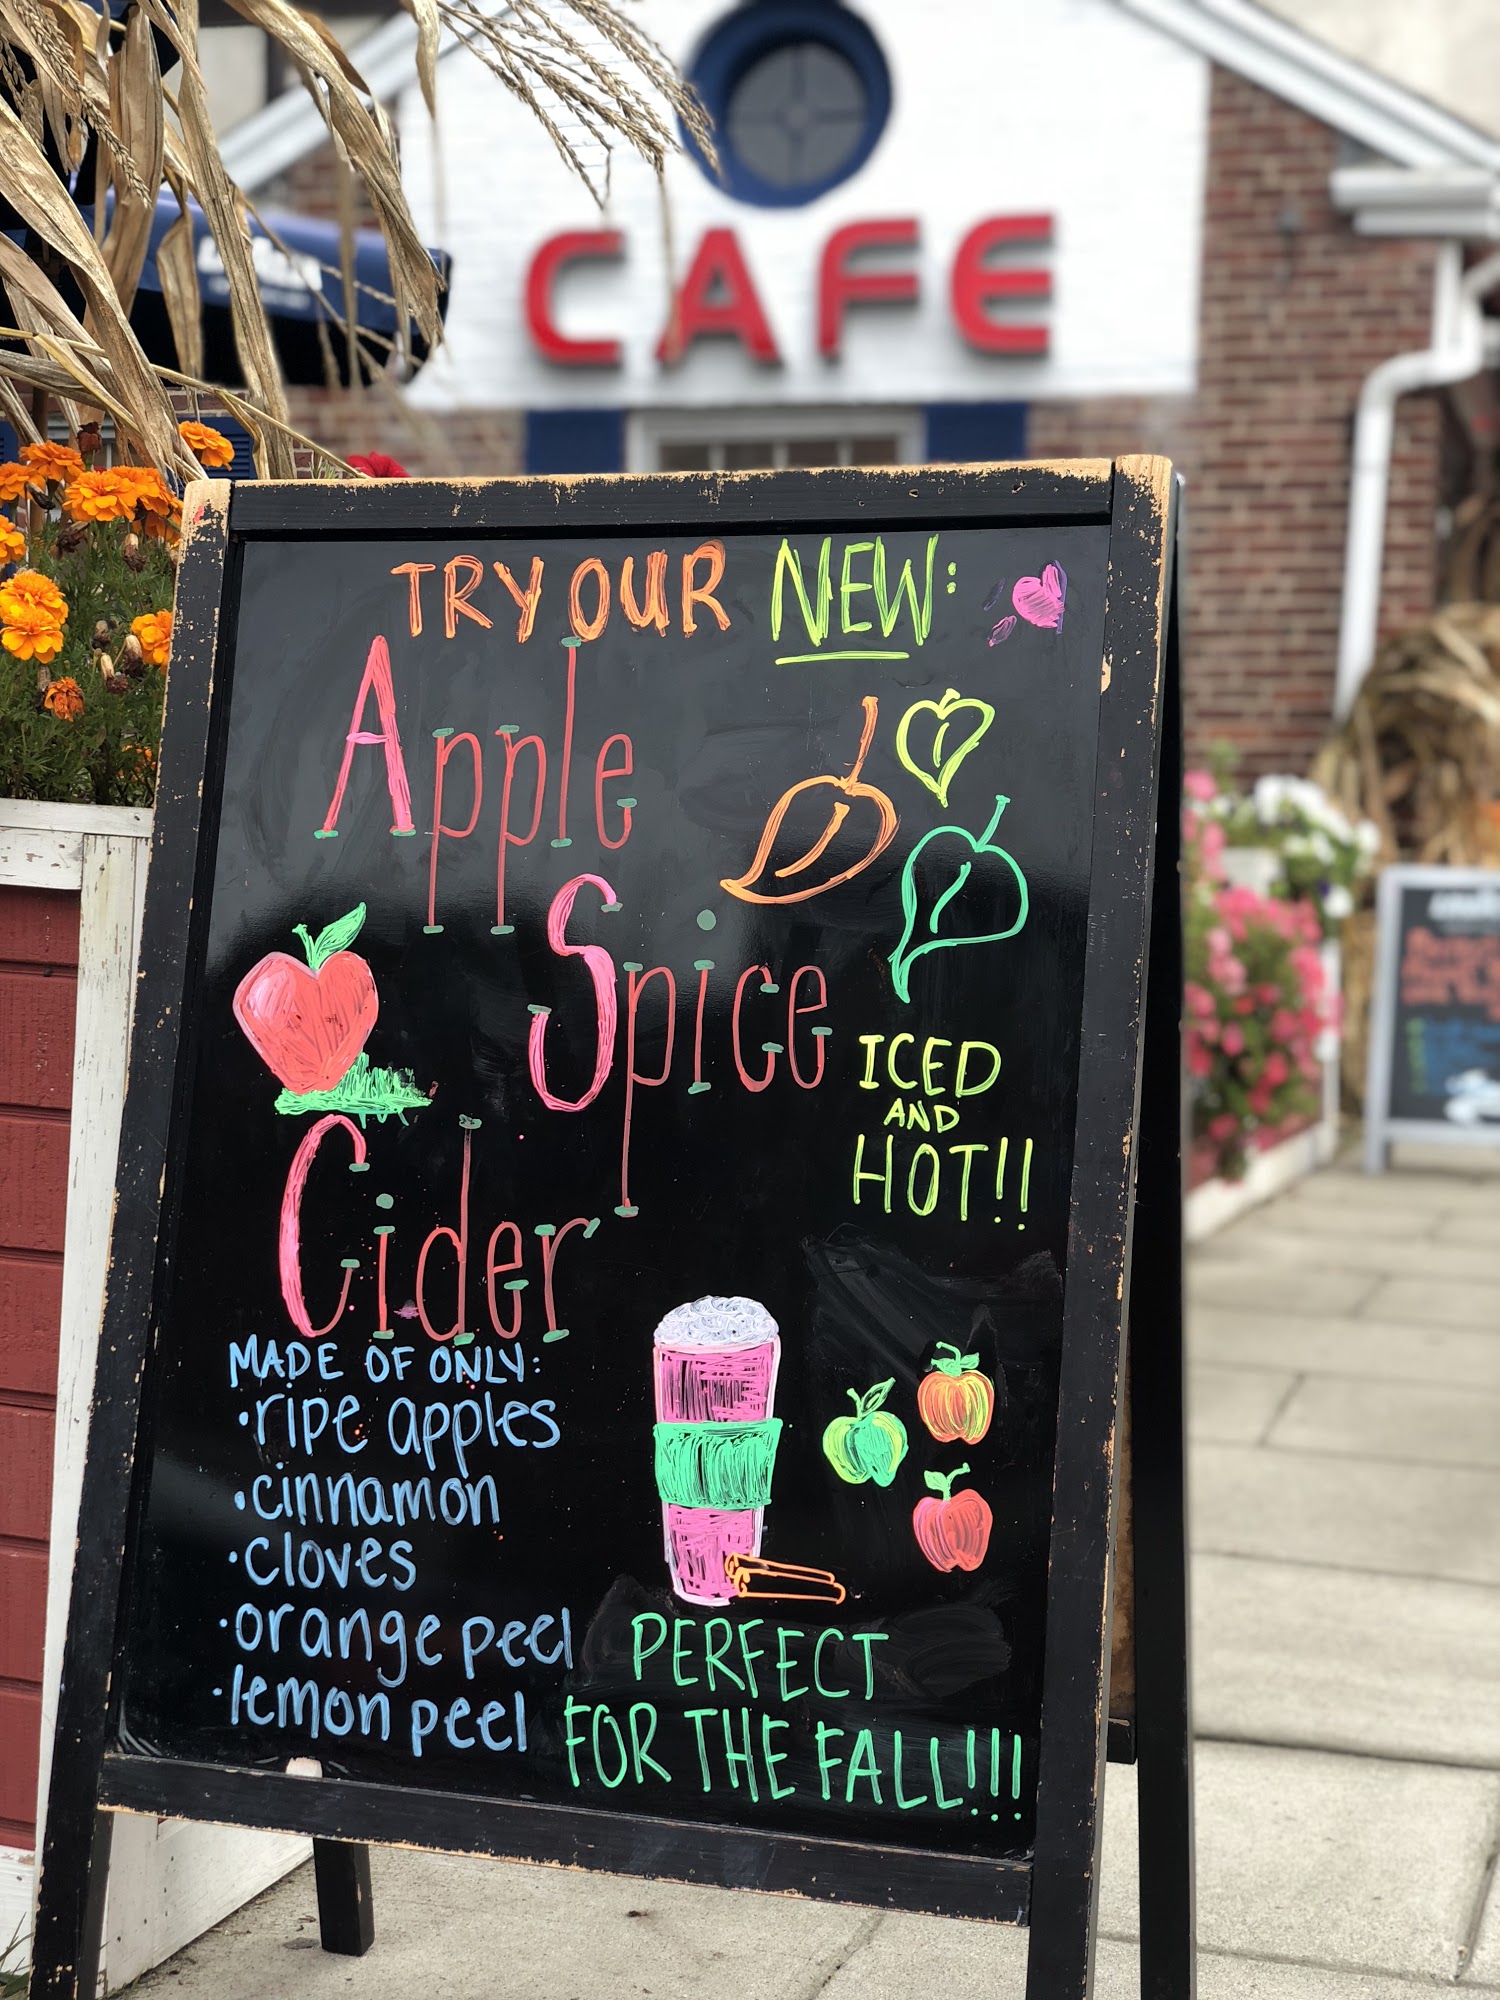 CAFE
TRY OUR NEW:
Apple
Spice
Cider
ICED
AND
HOT!!
MADE OF ONLY:
·ripe apples
·cinnamon
·cloves
·orange peel
·lemon peel
PERFECT
FOR THE FALL!!!